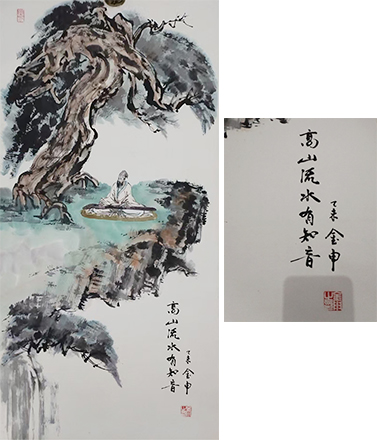 高山流水有知音
丁未 金申
高山流水有知音
丁未 金申